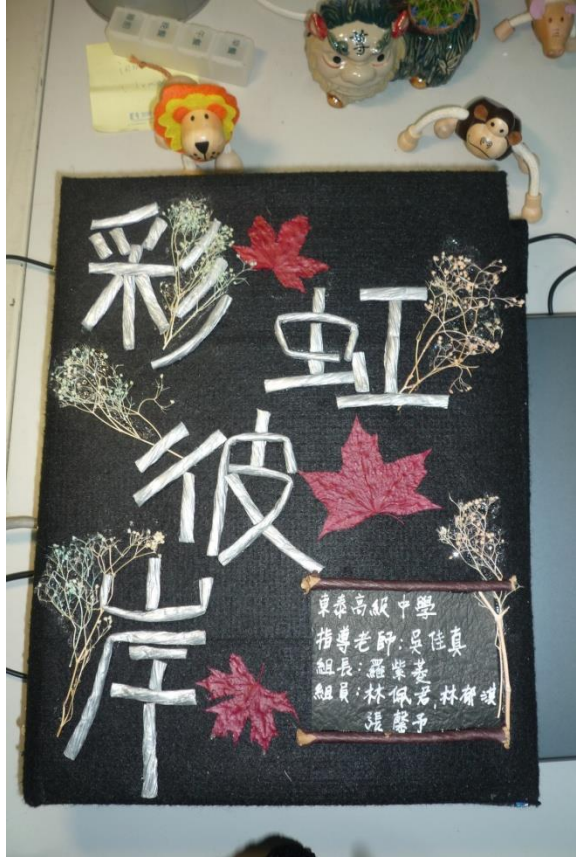 彩虹
彼
岸
東泰高級中學
指導老師:吳佳真
組長:羅紫菱
組員:林佩君,林育淇
張馨予